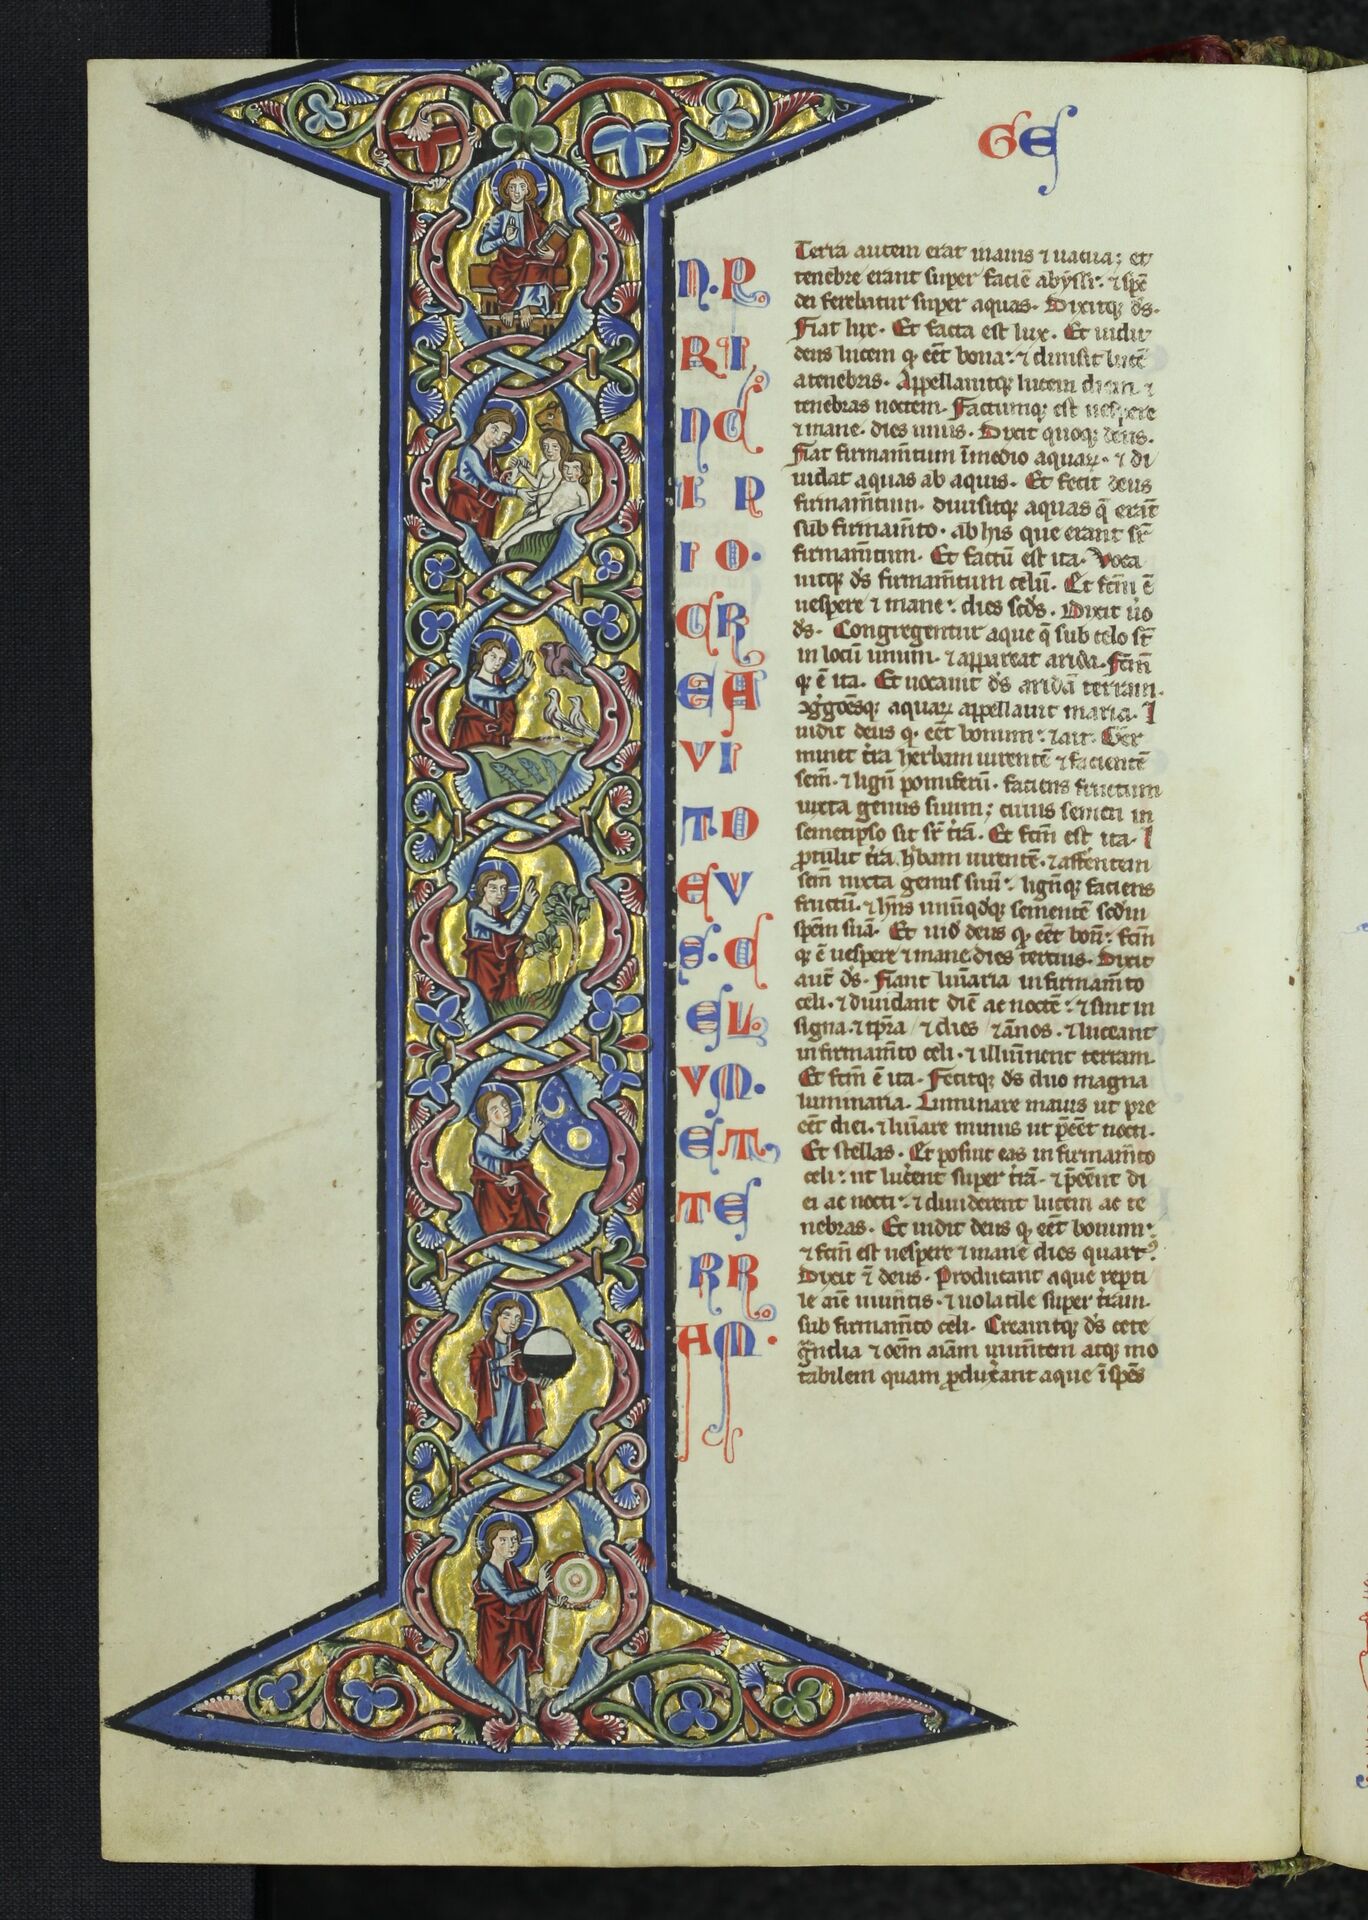 GE
I
N. P
RI
NC
I P
IO.
CR
EA
VI
T. D
EV
S. C
EL
VM.
ET
TE
RR
AM.
Terra autem erat inanis ⁊ uacua; et
tenebre erant super faciē abyssi. ⁊ spc̄
dei ferebatur super aquas. Dixitq; ds̄.
Fiat lux. Et facta est lux. Et uidit
deus lucem qͥ eēt bona: ⁊ diuisit lucē
atenebris. Appellauitq; lucem diem ⁊
tenebras noctem. Factumq; est uespere
⁊ mane. dies unus. Dixit quoq; deus.
Fiat firmam̄tum īmedio aquaꝝ. ⁊ di
uidat aquas ab aquis. Et fecit deus
firmam̄tum. diuisitq; aquas q̄ erāt
sub firmam̄to. ab his que erant sr̄
firmam̄tum. Et factū est ita. Voca
uitq; ds̄ firmam̄tum celū. Et fcm̄ ē
uespere ⁊ mane: dies scds̄. Dixit u̇o
ds̄. Congregentur aque q̄ sub celo st̄
in locū unum. ⁊ appareat arida. Fcm̄
q; ē ita. Et uocauit ds̄ aridā terram.
ꝯg̓gōesq; aquaꝝ appellauit maria. I
uidit deus qͥ eēt bonum: ⁊ ait. Ger
minet t̓ra herbam uirentē ⁊ facientē
sem̄. ⁊ lign̄ pomiferū. faciens fructum
iuxta genus suum; cuius semen in
semetipso sit sr̄ t̓rā. Et fcm̄ est ita. I
ꝓtulit t̓ra h̓bam uirentē. ⁊ afferentem
sem̄ iuxta genus suū: lignūq; faciens
fructū. ⁊ hn̄s unūqdq; sementē scdm
spēm suā. Et uid̓ deus qͥ eēt bon̄: fcm̄
q; ē uespere ⁊ mane dies tertius. Dixit
aut̄ ds̄. Fiant lum̄aria infirmam̄to
celi. ⁊ diuidant diē ac noctē: ⁊ sint in
signa ⁊ tp̄ra ⁊ dies ⁊ ānos. ⁊ luceant
infirmam̄to celi. ⁊ illum̄inent terram.
Et fcm̄ ē ita. Fecitq; ds̄ duo magna
luminaria. Luminare maius ut pre
eēt diei. ⁊ lum̄are minus ut p̄eēt nocti.
Et stellas. Et posuit eas in firmam̄to
celi: ut luc̓ent super t̓rā. ⁊ p̄eēnt di
ei ac nocti: ⁊ diuiderent lucem ac te
nebras. Et uidit deus qͥ eēt bonum:
⁊ fcm̄ est uespere ⁊ mane dies quartꝰ
Dixit ē deus. Producant aque repti
le aīe uiuētis. ⁊ uolatile super t̓ram.
sub firmam̄to celi. Creauitq; ds̄ cete
g̓ndia ⁊ oēm aīam uiuētem atq; mo
tabilem quam ꝓdux̓ant aque ī spēs